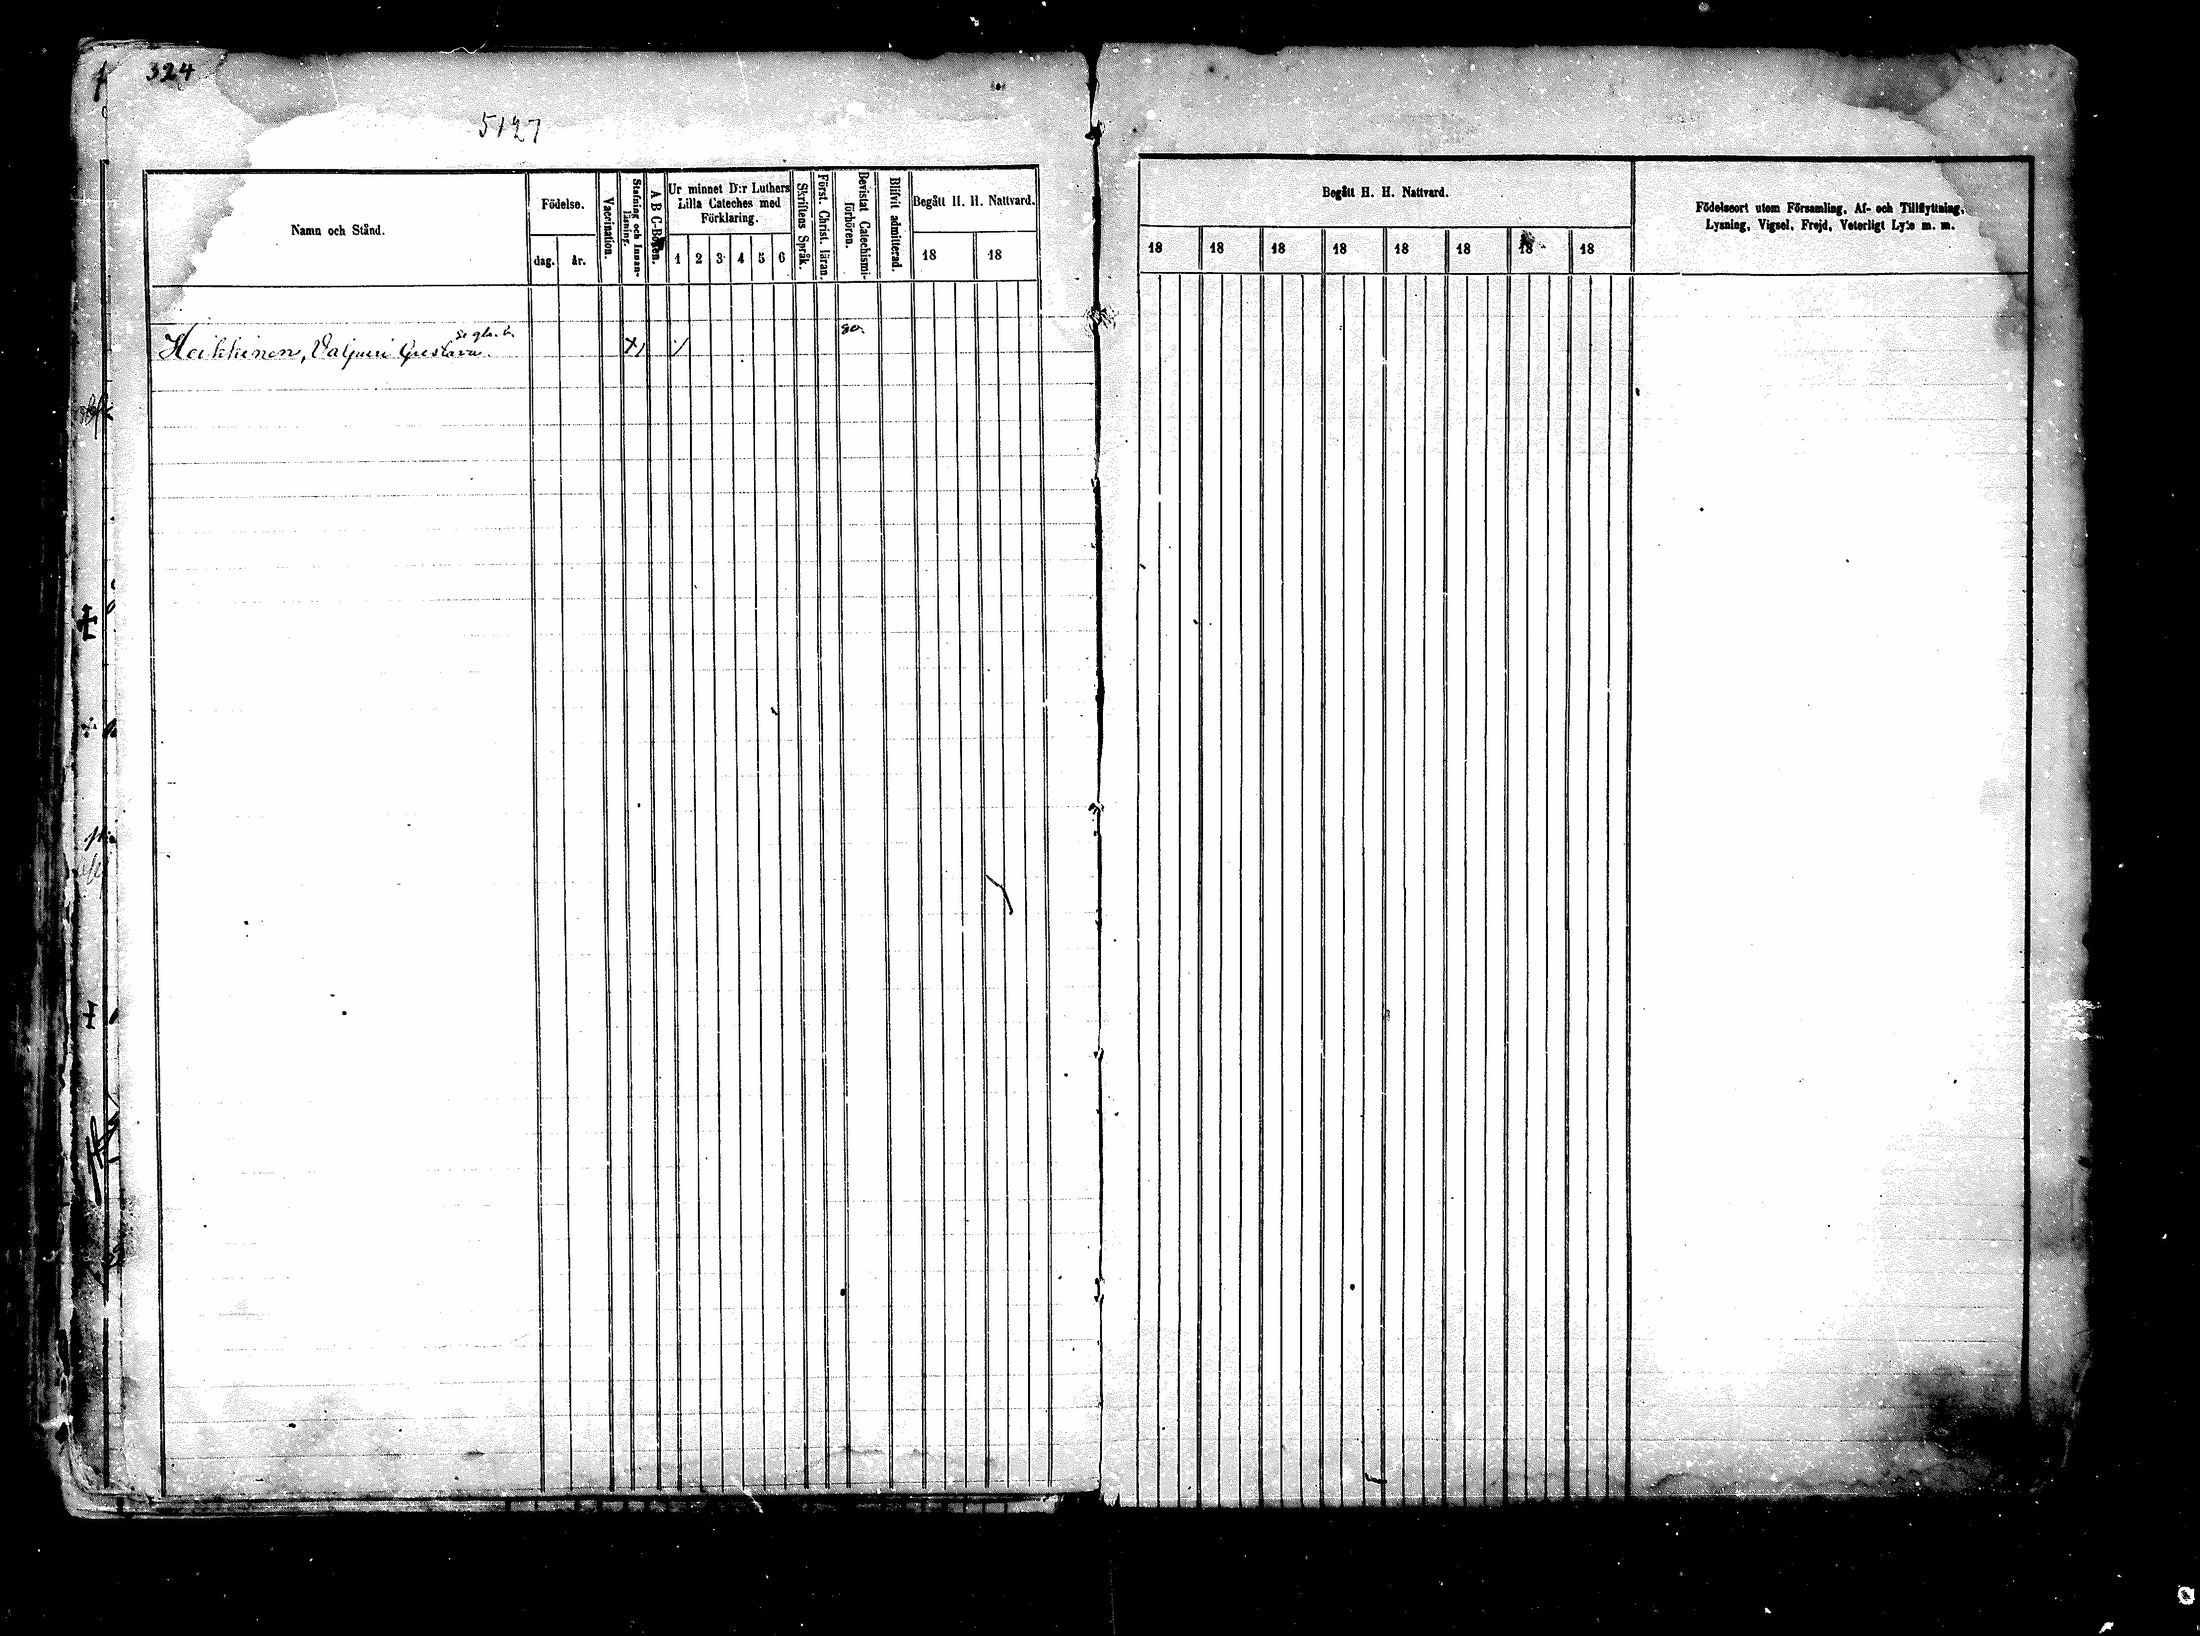 324
5127
Namn och Stånd.
Födelse.
dag.
år.
Vaccination.
Stafning och Innan-
läsning.
A B C-Boken.
Ur minnet D:r Luthers
Lilla Cateches med
Förklaring.
1 2 3 4 5 6
Skriftens Språk.
Först. Christ. läran.
Bevistat Catechismi-
förhören.
Blifvit admitterad.
Begått H. H. Nattvard.
18 18
Heikkinen, Valpuri Gustava.
Begått H. H. Nattvard.
18 18 18 18 18 18 18 18
Födelseort utom Församling, Af- och Tillflyttning,
Lysning, Vigsel, Frejd, Veterligt Lyte m. m.